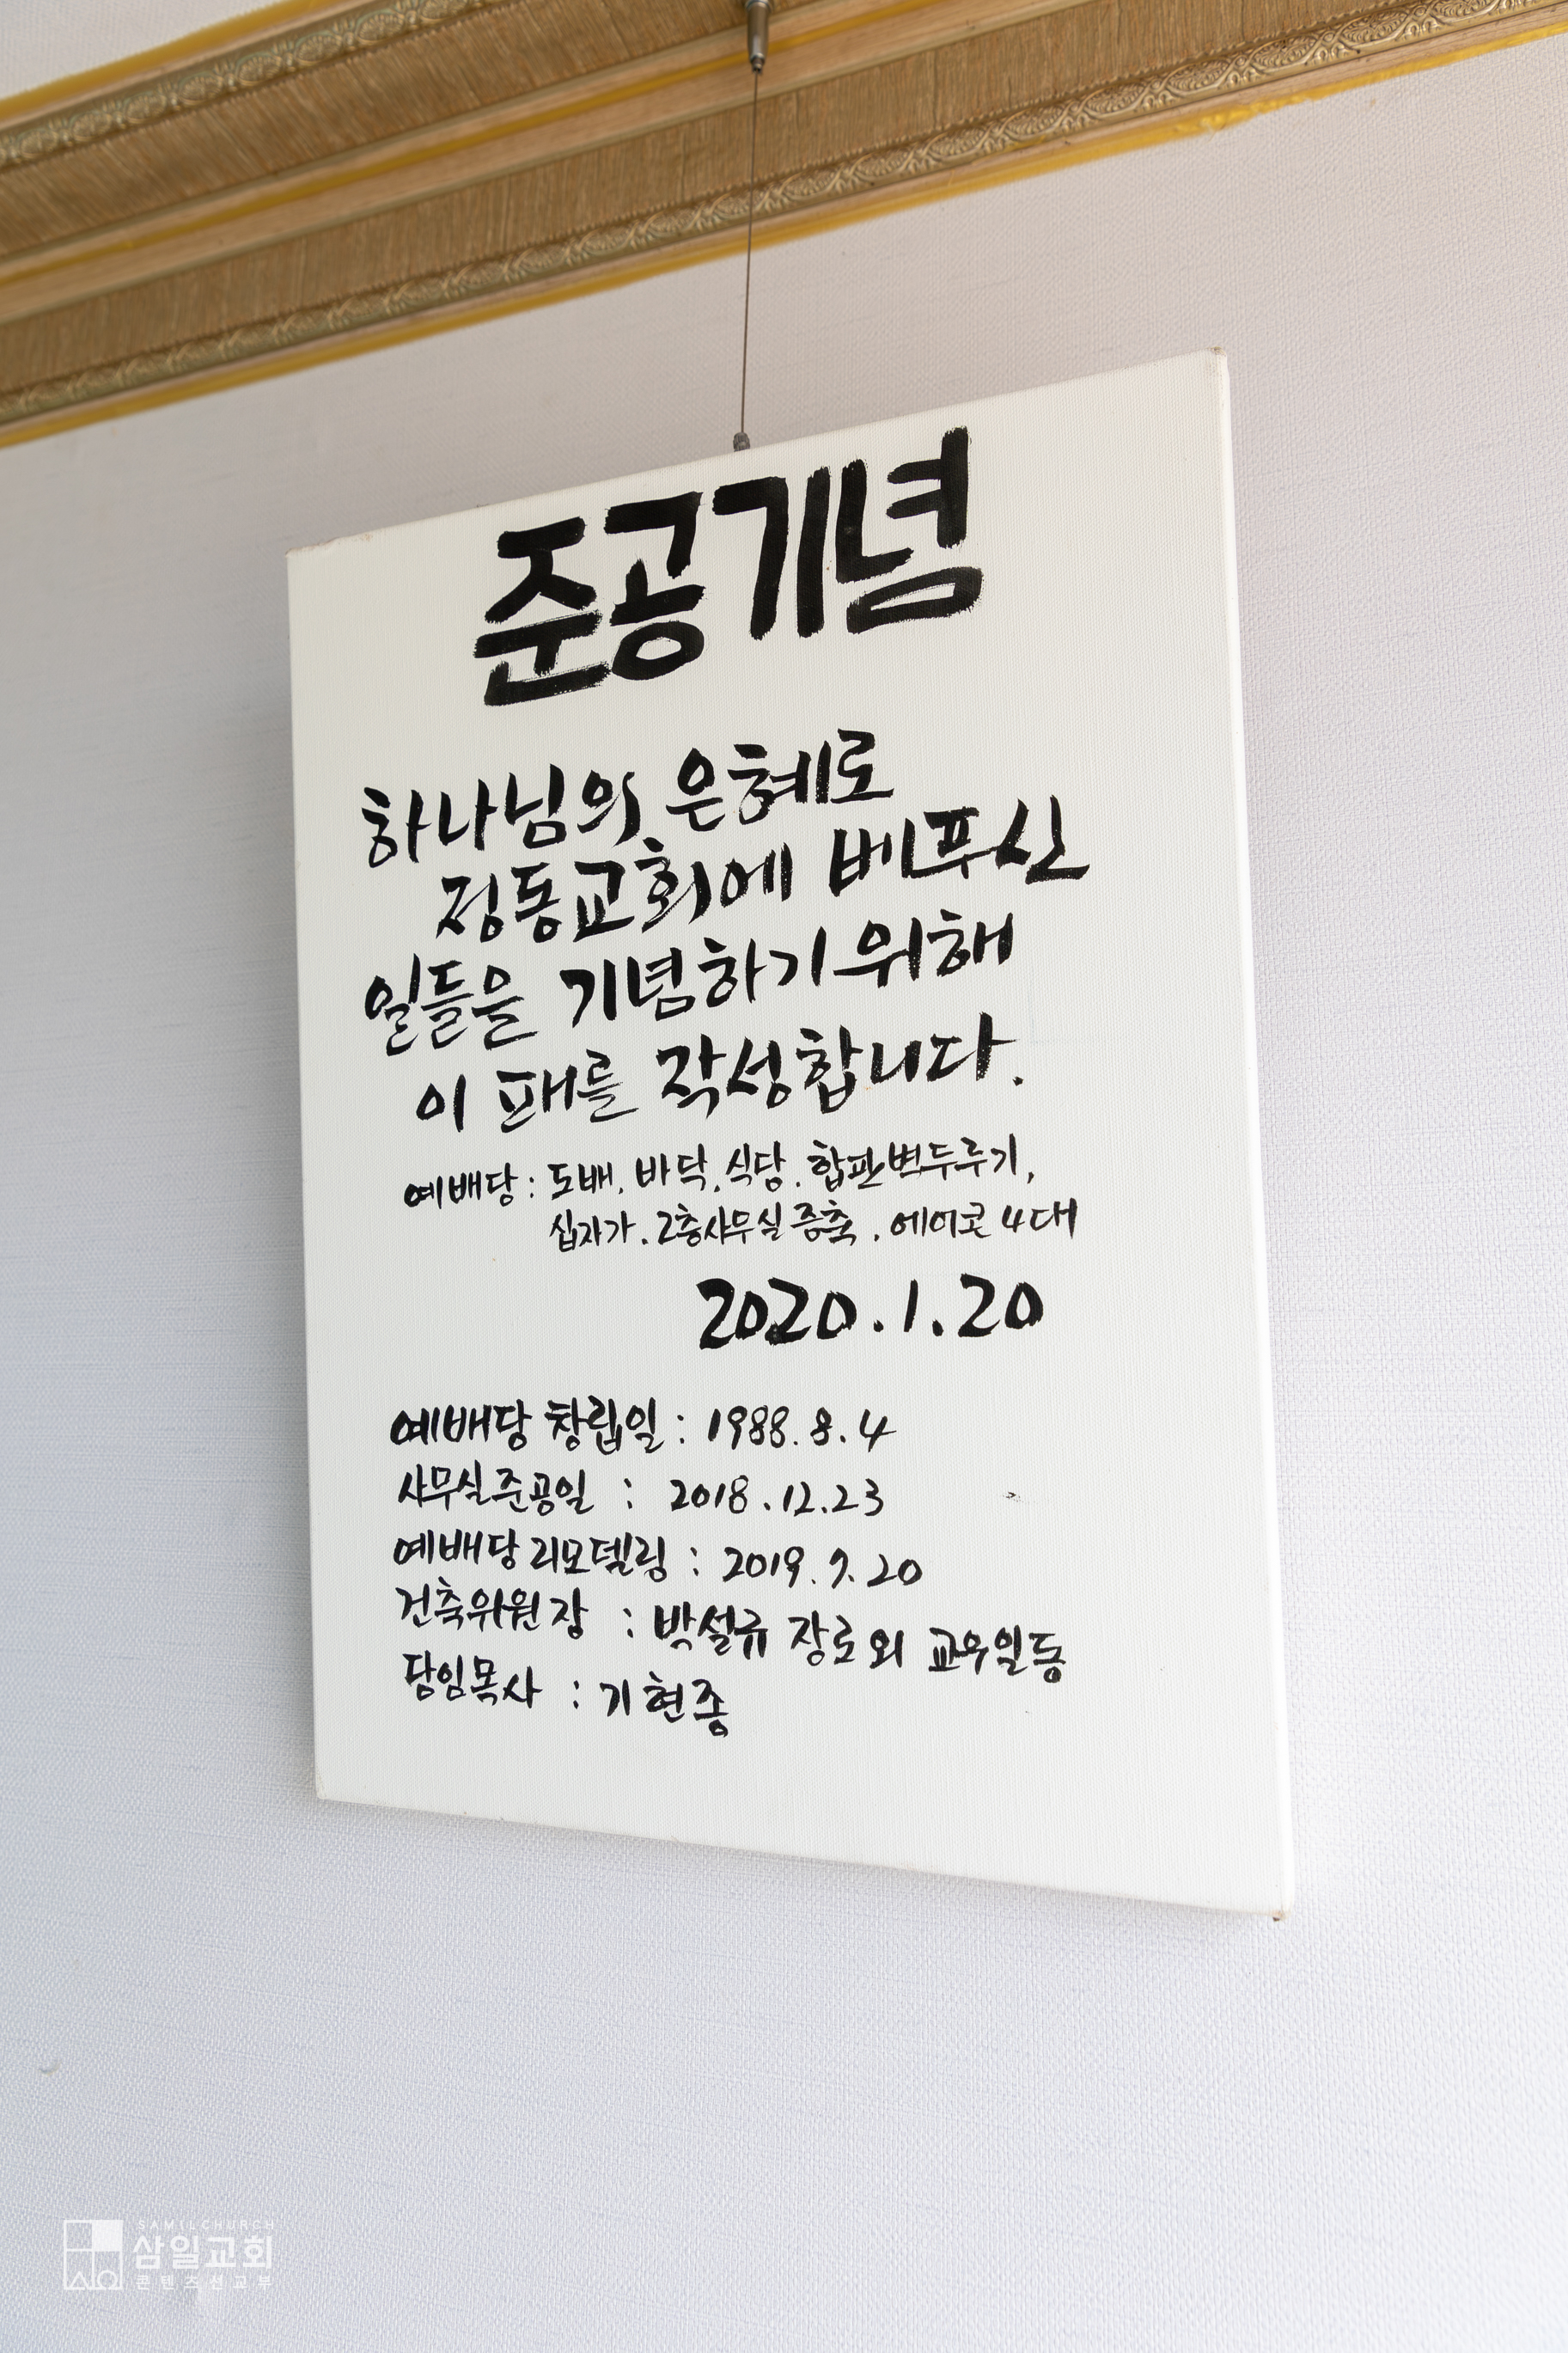 준공기념
하나님의 은혜로
정동교회에 베푸신
일들을 기념하기 위해
이 패를 작성합니다.
예배당 : 도배. 바닥. 식당. 합판벽두루기,
십자가. 2층사무실 증축. 에어콘 4대
2020.1.20
예배당 창립일 : 1988. 8. 4
사무실준공일 : 2018.12.23
예배당 리모델링 : 2019. 9. 20
건축위원장 : 박설류 장로 외 교우일동
담임목사 : 기현종
SAMILCHURCH
삼일교회
콘텐츠선교부